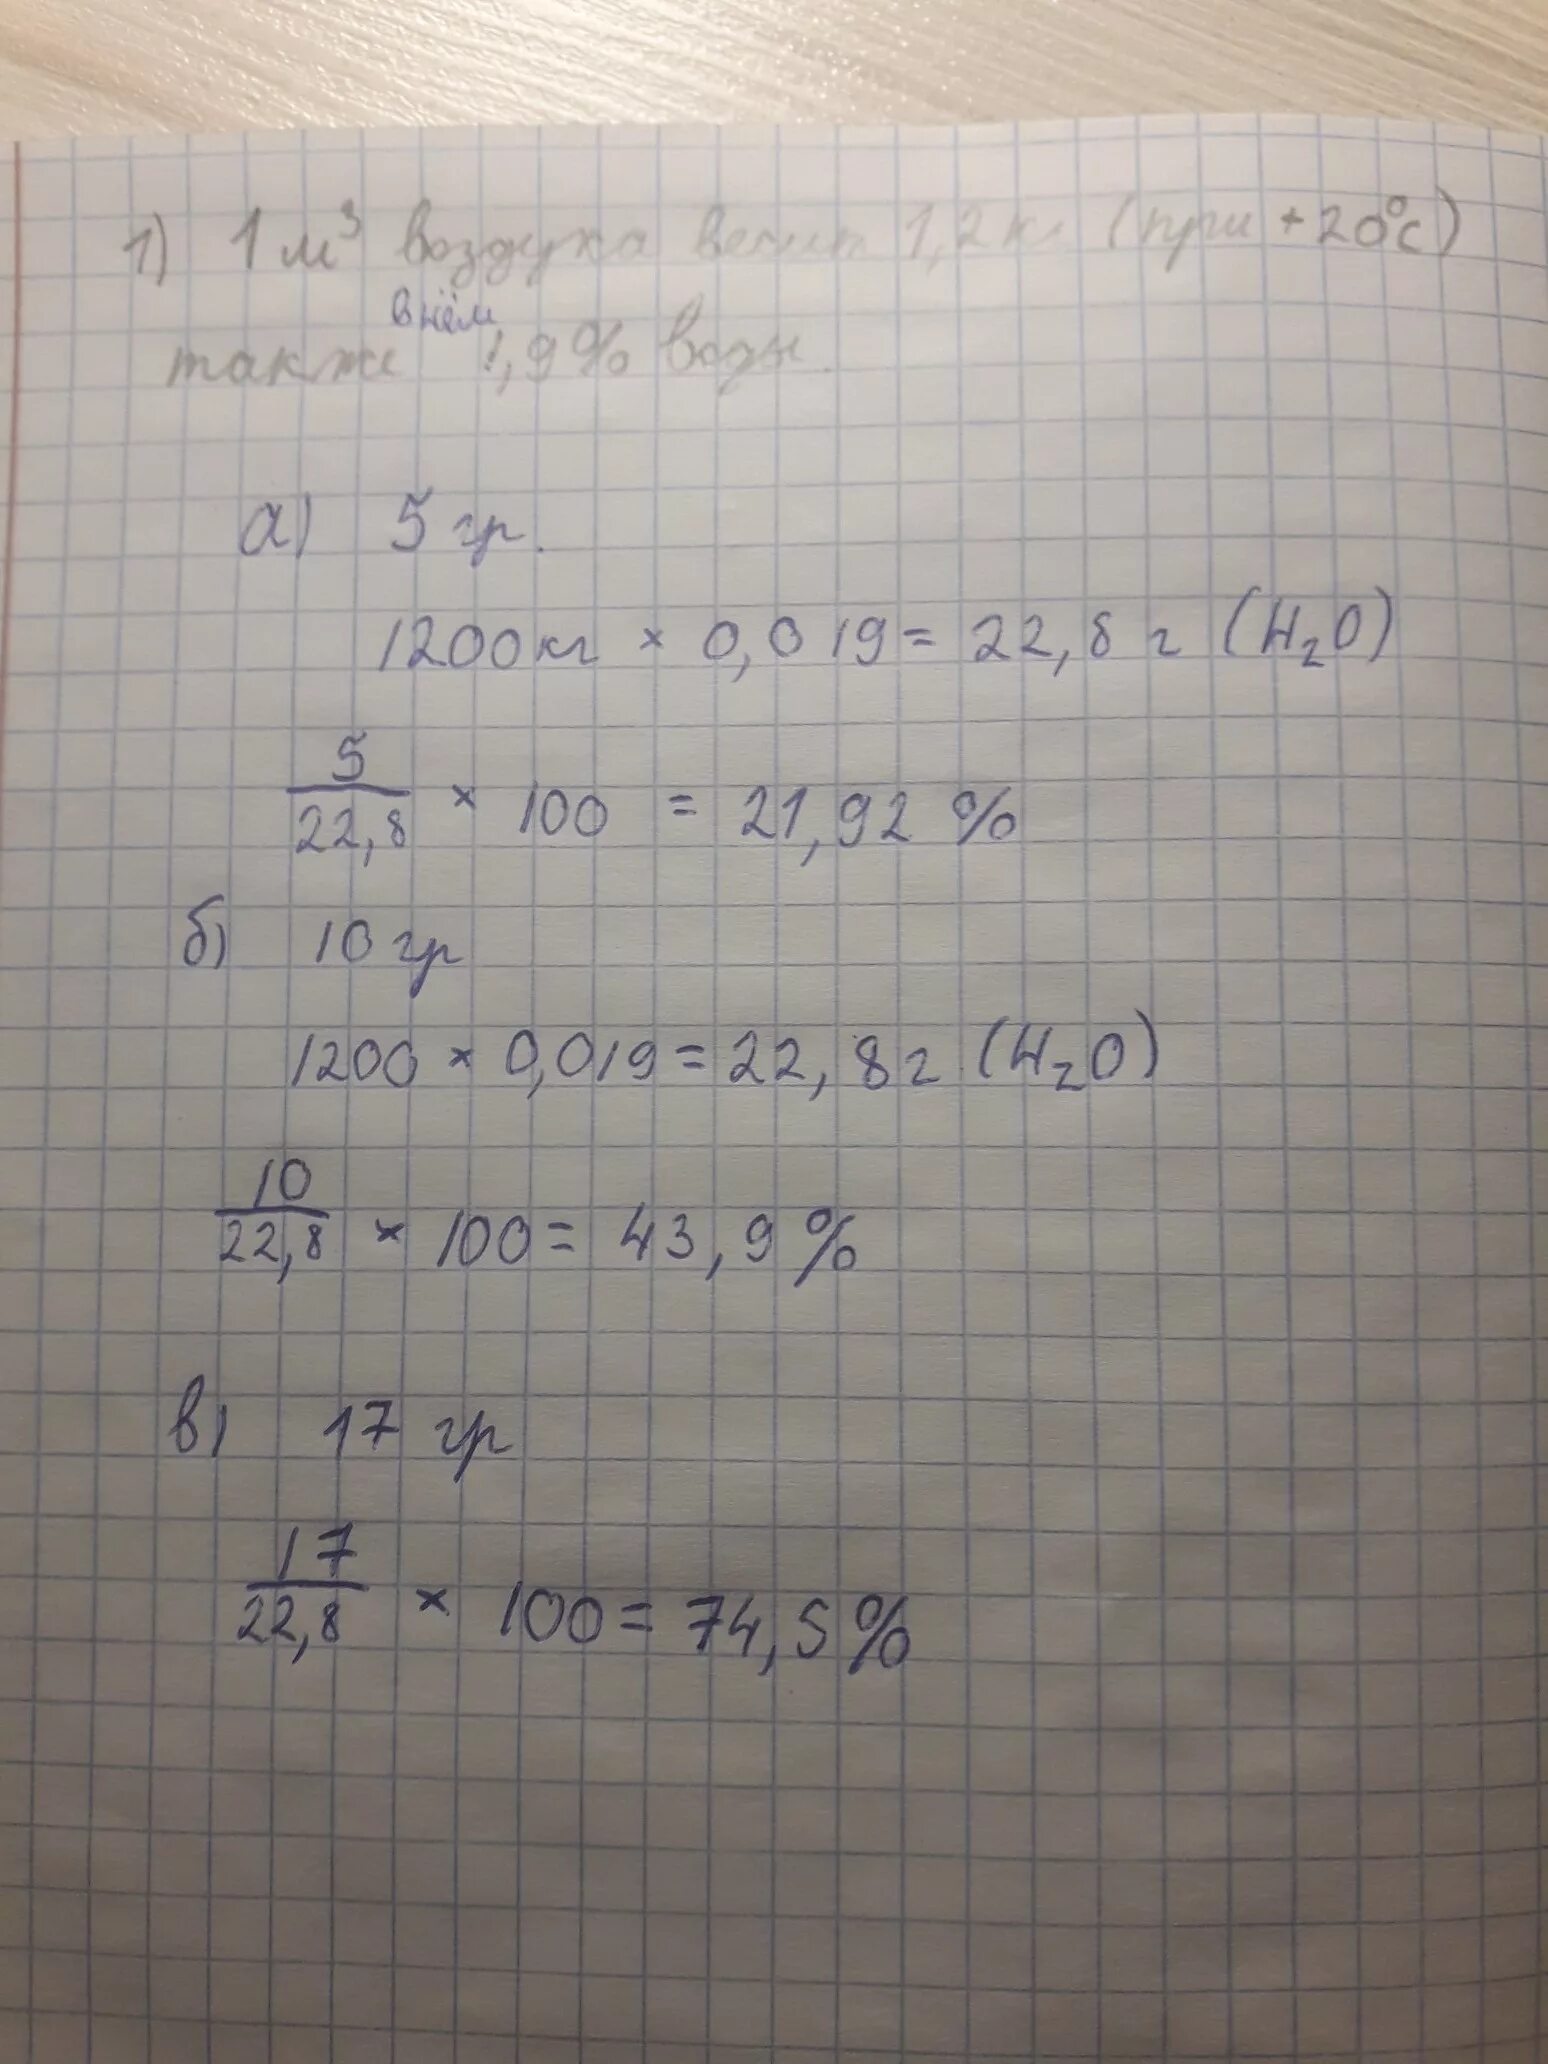 1) 1 м³ воздуха весит 1,2 кг (при +20°С)
в нём
также 1,9% воды.
а) 5 гр.
1200кг × 0,019 = 22,8 г (H₂O)
5/22,8 × 100 = 21,92 %
б) 10 гр
1200 × 0,019 = 22,8 г (H₂O)
10/22,8 × 100 = 43,9 %
в) 17 гр
17/22,8 × 100 = 74,5 %